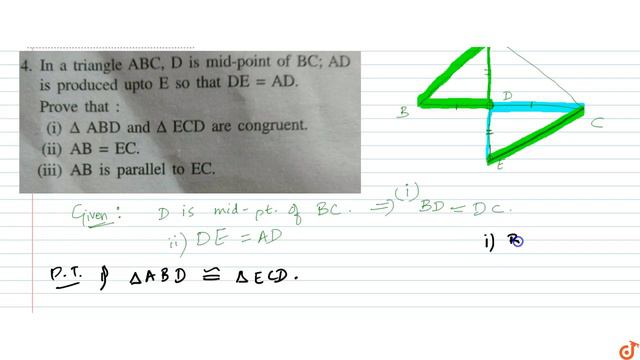 4. In a triangle ABC, D is mid-point of BC; AD
is produced upto E so that DE = AD.
Prove that :
(i) Δ ABD and Δ ECD are congruent.
(ii) AB = EC.
(iii) AB is parallel to EC.
B D C
E
Given: D is mid-pt. of BC. ⇒ (i) BD = DC.
ii) DE = AD
i) B
P.T. i) ΔABD ≅ ΔECD.